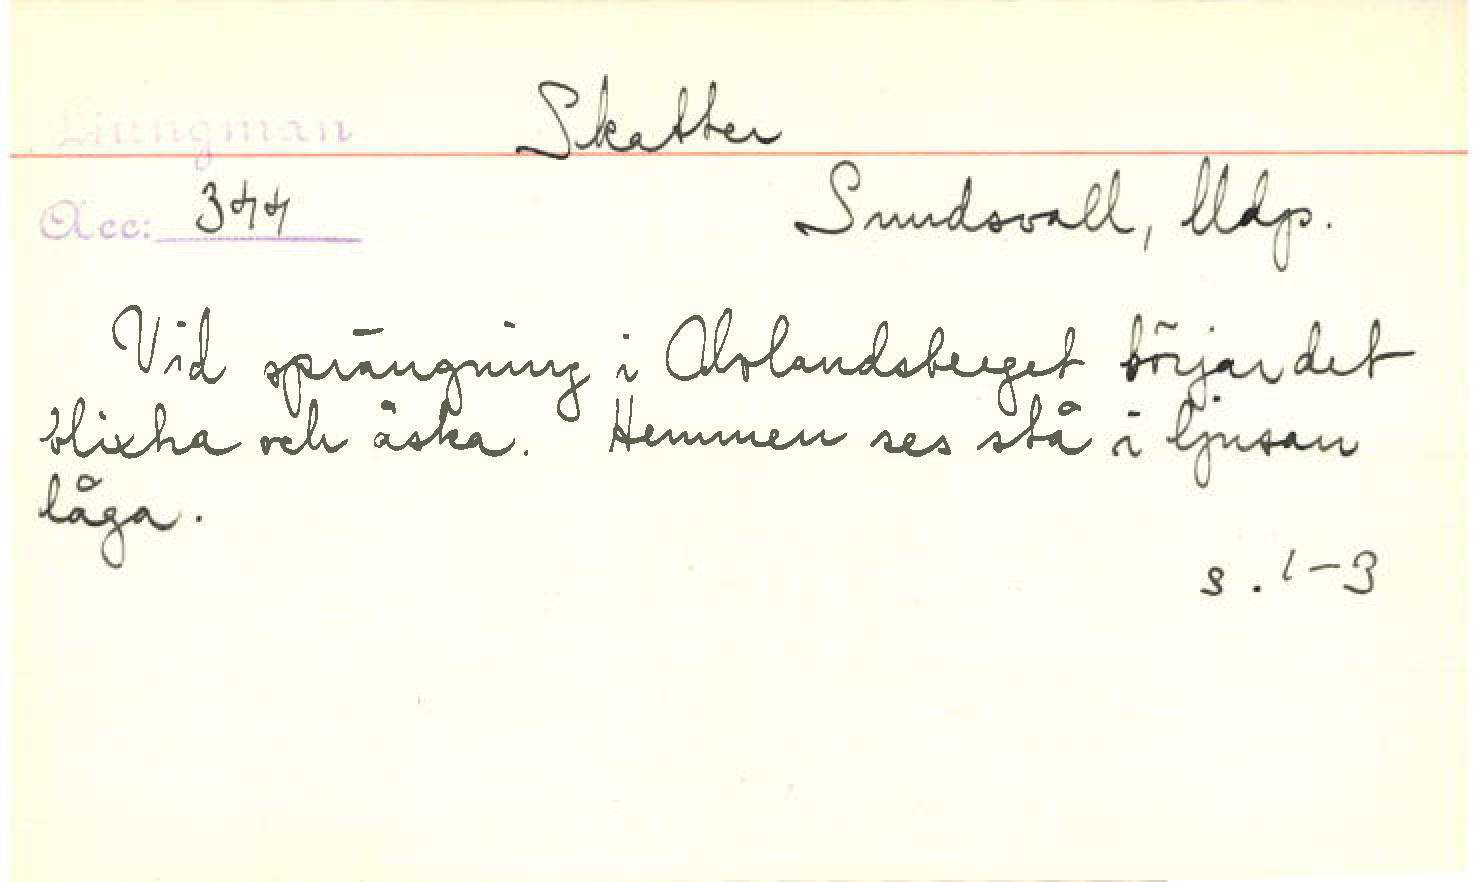 Ljungman Skatter
Acc: 344 Sundsvall, Mdp.
Vid sprängning i börjar det
blixtra och åska. Hemmen ses stå i ljusan
låga.
s. 1-3